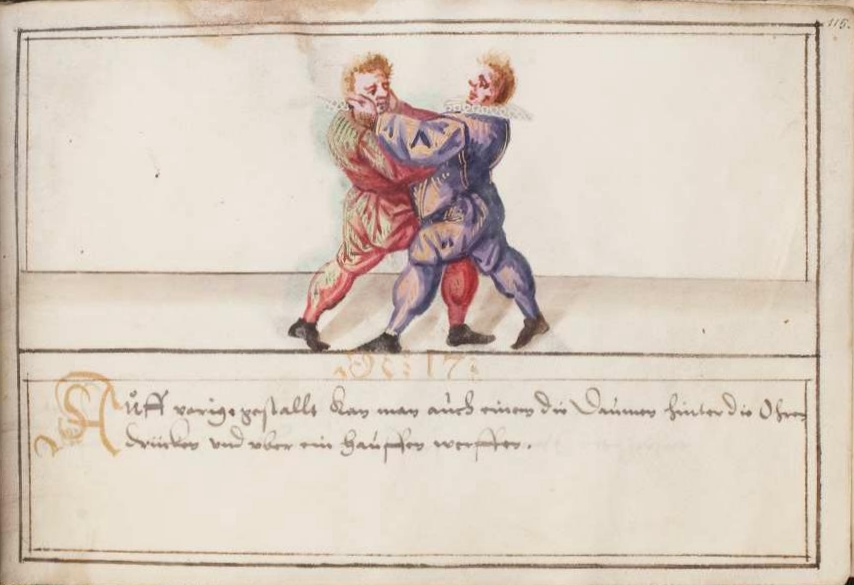 115.
N: 17:
Aůff vorige gestallt Kan man aůch einen die Daůmen hinter die Ohren
drücken und vber ein haůffen werffen.